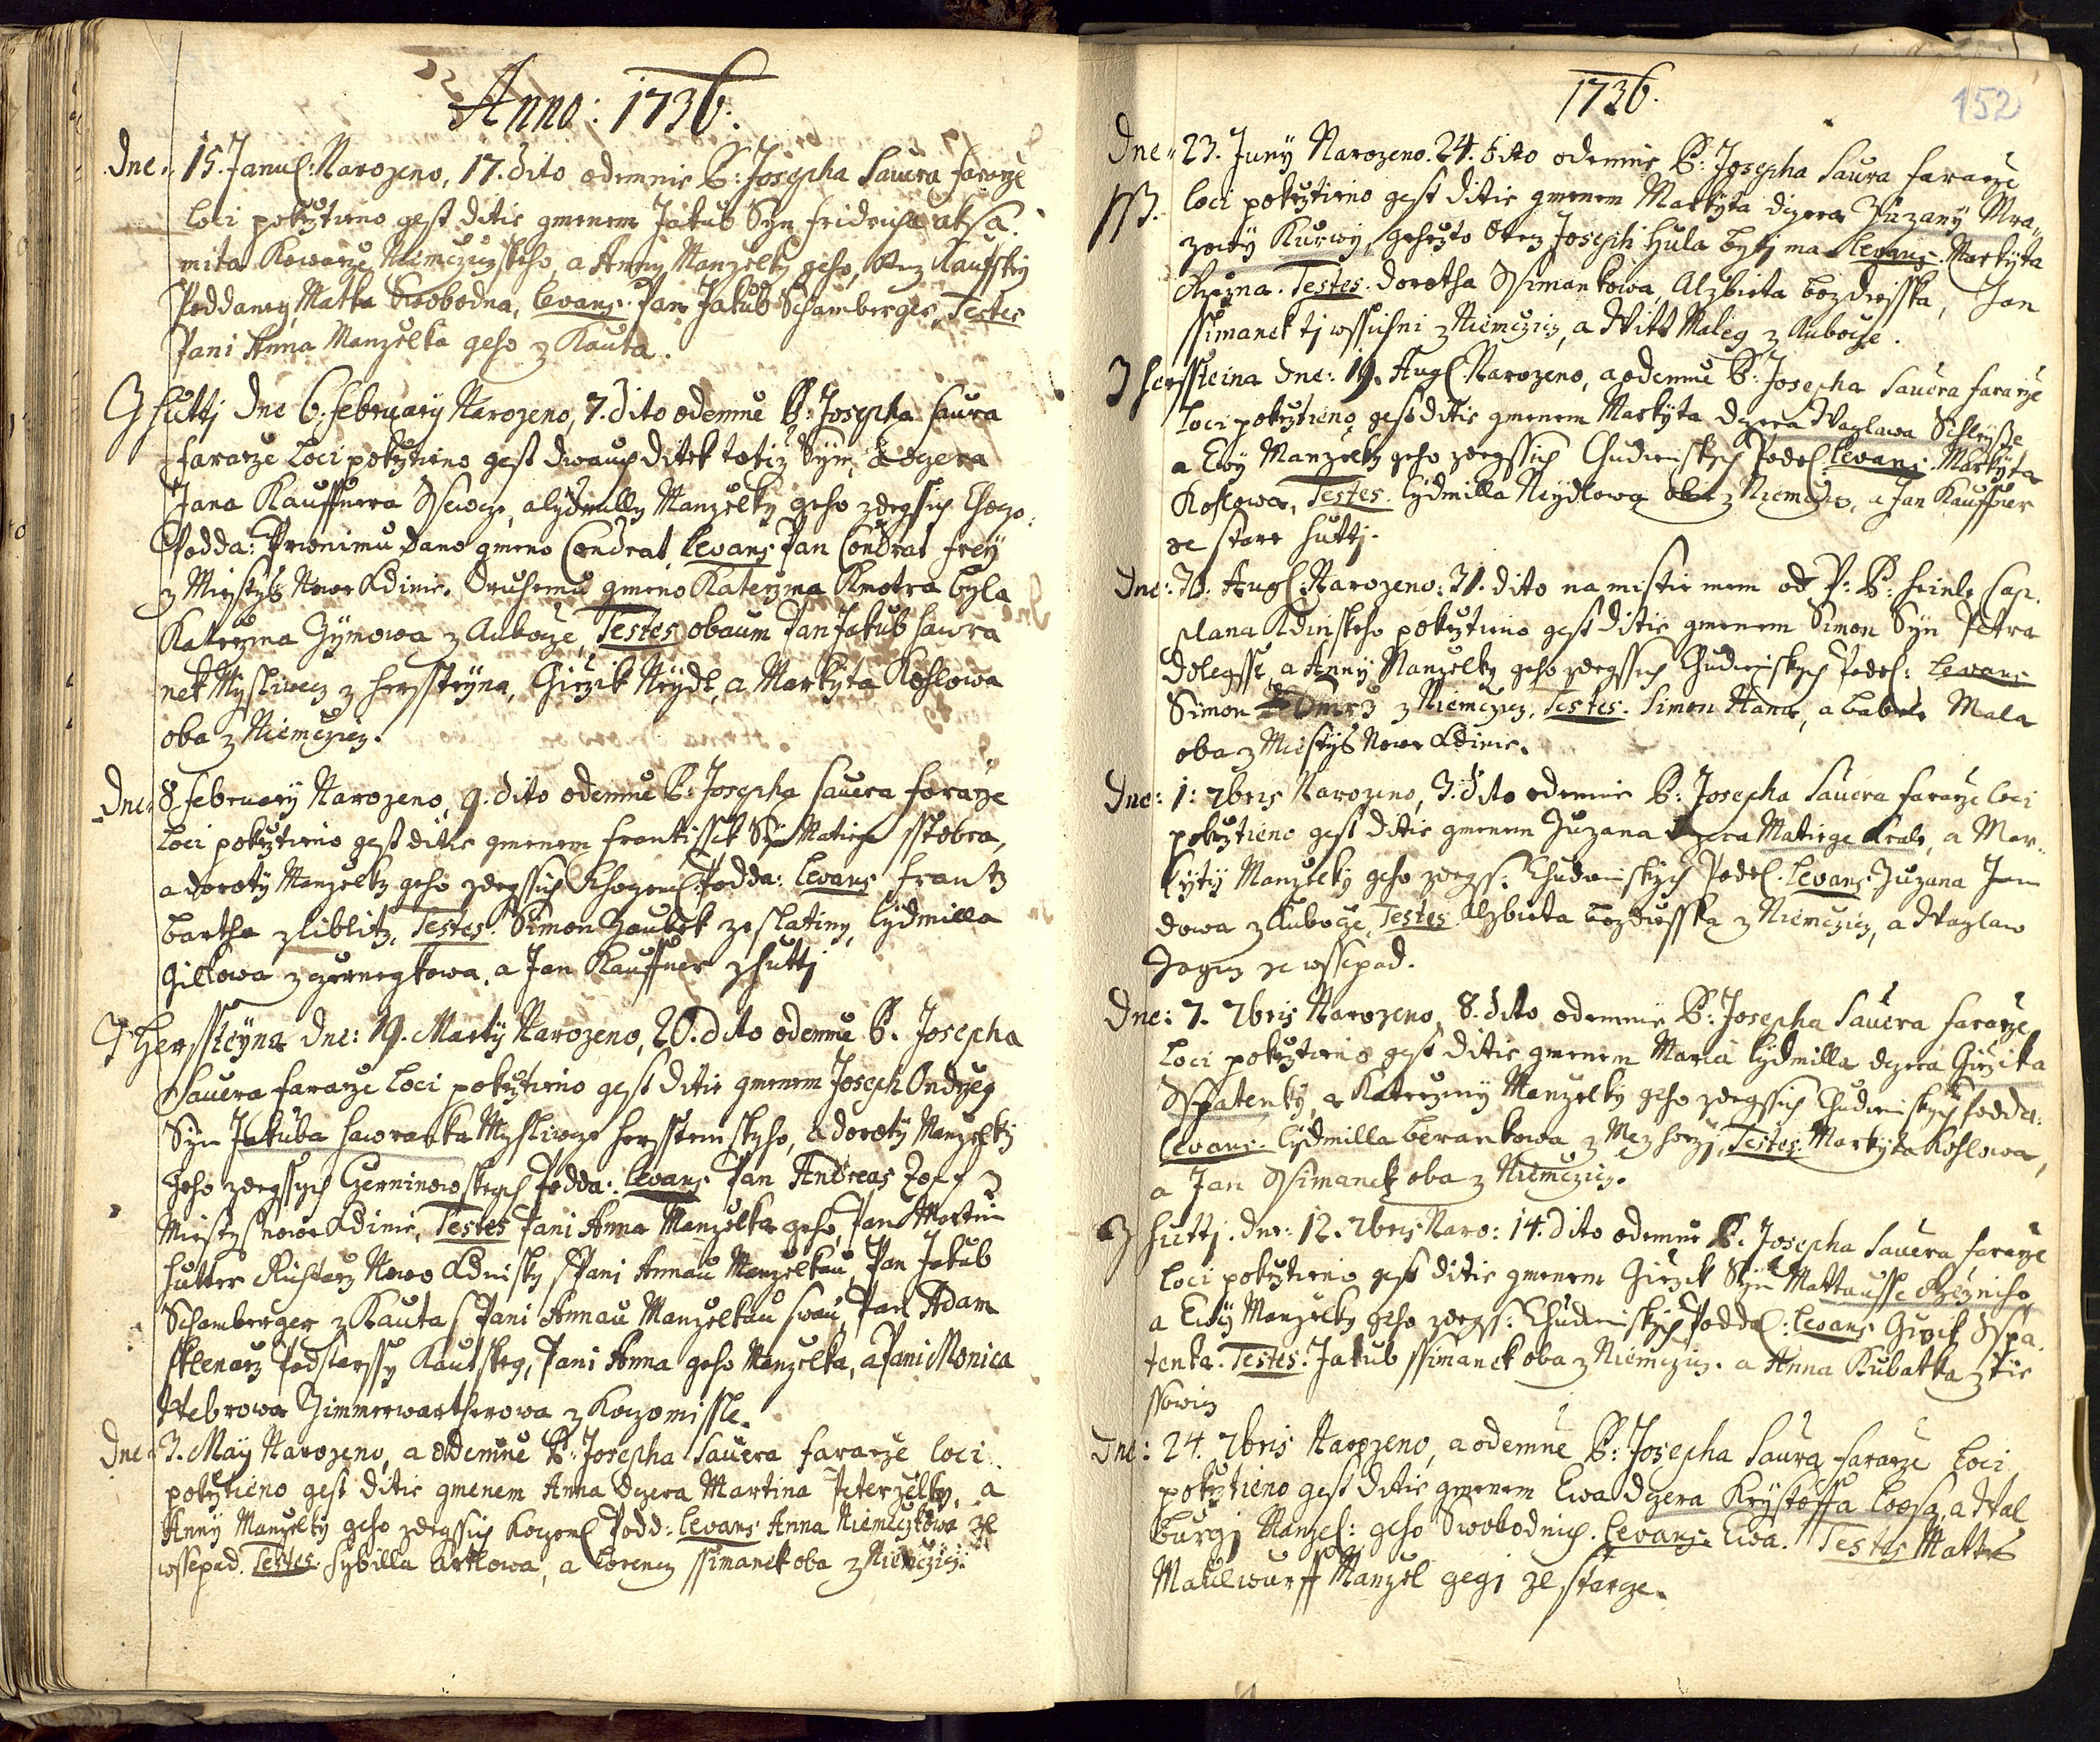 Anno: 1736.
Dne. 15. Janu: Narozeno, 17. dito odemnie P: Josepha Sauera faraze
loci pokrztieno gest ditie gmenem Jakub Syn Fridricha
mita Kowarze Niemczizskeho, a Anny Manzelky geho, Otecz Kautsky
Poddaney, Matka Swobodna, Levans Pan Jakub Schamberger, Testes
Pani Anna Manzelka geho z Kauta.
Z Hutti Dne 6. February Narozeno, 7. dito odemne P: Josepha Saura
faraze Loci pokrztieno gest dwauch ditek totiz Syn, a dczera
Jana Kauffnera Ssewcze, a Lydmilly Manzelky geho zdegssich Chozo:
Podda: Prwnimu dano gmeno Condrat, Levans Pan Condrat Frey
z Miestys Nowe Kdinie. Druhemu gmeno Katerzina Kmotra byla
Katerzina Zymowa z Lubocze, Testes obaum Pan Jakub Hawra
nek Mysliwecz z Herssteyna, Girzik Neydl, a Markyta Kohlowa
oba z Niemczicz.
Dne: 8. February Narozeno, 9. dito odemne P: Josepha Sauera faraze
loci pokrztieno gest ditie gmenem Frantissek Syn Matiege sstebra,
a Doroty Manzelky geho zdegssich Chozom Podda: Levans Frantz
Bartha z Liblitz, Testes. Simon Haubek ze Slatiny, Lydmilla
Gillowa z Czernegkowa, a Jan Kauffner z Hutti
Z Hersssteyna Dne: 19. Marty Narozeno, 20. dito odemne P. Josepha
Sauera faraze Loci pokrztieno gest ditie gmenem Joseph Ondrzeg
Syn Jakuba Hawranka Mysliwcze Herssteinskyho, a Doroty Manzelky
geho zdegssych Czerninowskych Podda: Levans Pan Andreas Zopf z
Miestys Nowe Kdinie, Testes Pani Anna Manzelka geho, Pan Martin
Hutter Richtarz Nowo Kdinsky s Pani Annau Manzelkau, Pan Jakub
Schamberger z Kauta s Pani Annau Manzelkau swau, Pan Adam
Sklenarz Podstarssy Kautskeg, Pani Anna geho Manzelka, a Pani Monica
Webrowa Zimmerwartherowa z Koczomissle.
Dne: 3. May Narozeno, a odemne P: Josepha Sauera faraze loci
pokrztieno gest ditie gmenem Anna dczera Martina Peterzelky, a
Anny Manzelky geho zdegssich Kozom Podd: Levans Anna Niemeczkowa ze
wssepad. Testes. Sybilla Artlowa, a Lorencz ssimanek oba z Niemczicz.
1736.
152
Dne: 23. Juny Narozeno. 24. dito odemnie P: Josepha Saura faraze
loci pokrztieno gest ditie gmenem Markyta dczera Zuzany Mra-
zowy Kurwy, gehozto Otecz Joseph Hula byti ma Levans. Markyta
Rzezna. Testes. Dorotha Ssimankowa, Alzbieta Bozdiesska, Jan
ssimanek ti wssichni z Niemczicz, a Witt Maleg z Lubocze.
Z Hersssteina Dne: 19. Aug: Narozeno, a odemne P: Josepha Sauera faraze
loci pokrztieno gest ditie gmenem Markyta dczera Waczlawa Schleysse
a Ewy Manzelky geho zdegssich Chudeniskych Podd: Levans. Markyta
Kohlowa, Testes. Lydmilla Neydlowa oba z Niemczicz, a Jan Kauffner
ze Stare Hutti.
Dne: 30. Aug: Narozeno: 31. dito na mistie mem od P: P: Heinle Cap-
plana Kdinskeho pokrztieno gest ditie gmenem Simon Syn Petra
Dolegsse, a Anny Manzelky geho zdegssich Chudeniskych Podd: Levans
Simon z Niemczicz, Testes. Simon Hana, a Mala
oba z Miestys Nowe Kdinie.
Dne: 1. 7bris Narozeno, 3. dito odemnie P: Josepha Sauera faraze loci
pokrztieno gest ditie gmenem Zuzana dczera Matiege Krale, a Mar-
kyty Manzelky geho zdegss: Chudeniskych Podd: Levans. Zuzana Jan
dowa z Lubocze, Testes. Alzbieta Bozdiesska z Niemczicz, a Waczlaw
ze wssepad.
Dne: 7. 7bris Narozeno, 8. dito odemnie P: Josepha Sauera faraze
Loci pokrztieno gest ditie gmenem Maria Lydmilla dczera Girzika
Sspatenky, a Katerziny Manzelky geho zdegssich Chudeniskych Podda:
Levans. Lydmilla Berankowa z Mezhorzi, Testes. Markyta Kohlowa,
a Jan Ssimanek oba z Niemczicz.
Z Hutti. Dne: 12. 7bris Naro: 14. dito odemne P. Josepha Sauera faraze
loci pokrztieno gest ditie gmenem Girzik Syn Mattausse Rzezniho
a Ewy Manzelky geho zdegss: Chudeniskych Podda: Levans Girzik Sspa-
tenka. Testes. Jakub ssimanek oba z Niemczicz. a Anna Kubatka z Tie
ssowicz
Dne: 24. 7bris Narozeno, a odemne P: Josepha Saura faraze loci
pokrztieno gest ditie gmenem Ewa dczera Krystoffa Loesa, a Wal
burgi Manzel: geho Swobodnich. Levans. Ewa. Testes Mattes
Maulwurff Manzel gegi ze Starze.